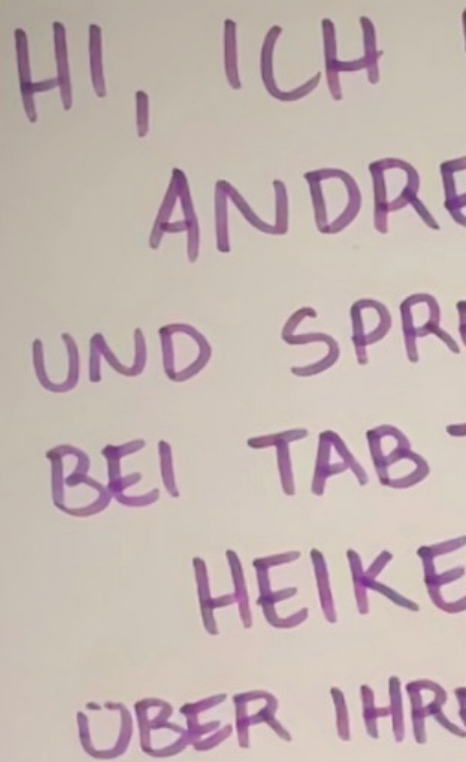 HI, ICH
ANDRE
UND SPRE
BEI TAB-
HEIKE
ÜBER IHRE